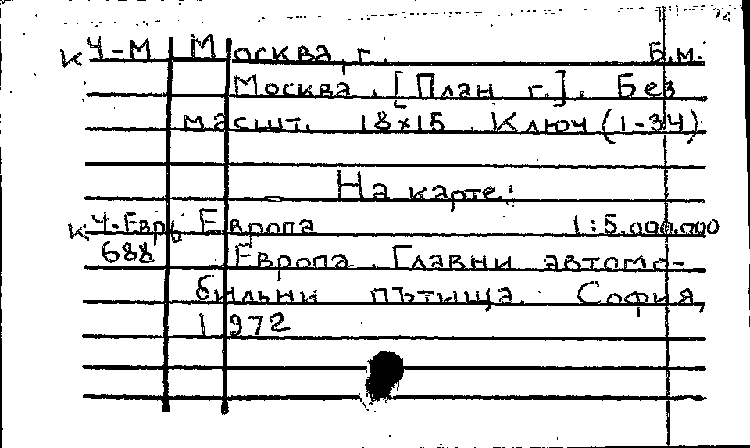 к Ч-М Москва, г. Б.м.
Москва. [План г.]. Без
масшт. 18×15. Ключ (1-34)
На карте:
к Ч-Евр. Европа 1:5.000.000
688 Европа. Главни автомо-
билни пътища. София,
1972